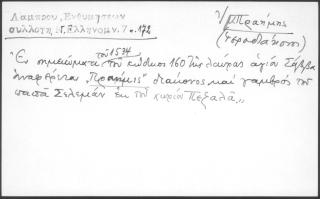 Λάμπρου, Ενθυμήσεων
συλλογή, Ν.Ελληνομν. 7 σ.172
Μπραήμης
(Ἱεροδιάκονος)
Ἐν σημειώματι τοῦ 1534 τοῦ κώδικος 160 τῆς Λαύρας ἁγίου Σάββα
ἀναφέρεται "Πραήμις" διάκονος καὶ γαμβρὸς τοῦ
παπᾶ Σελεμὰν ἐκ τοῦ χωρίου Πεξαλᾶ"